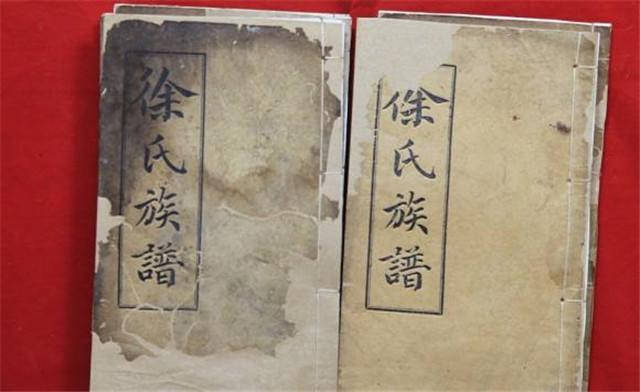 徐氏族譜
徐氏族譜